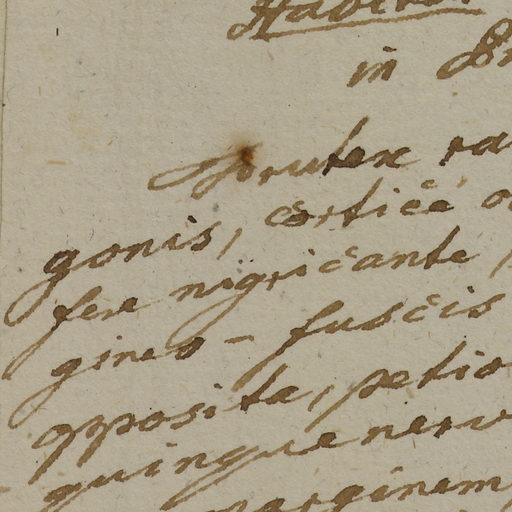 Habitat
in
Frutex ra
gonis, cortice
fere nigricante,
gineo-fuscis
opposita, petio
quinquenerv
marginem